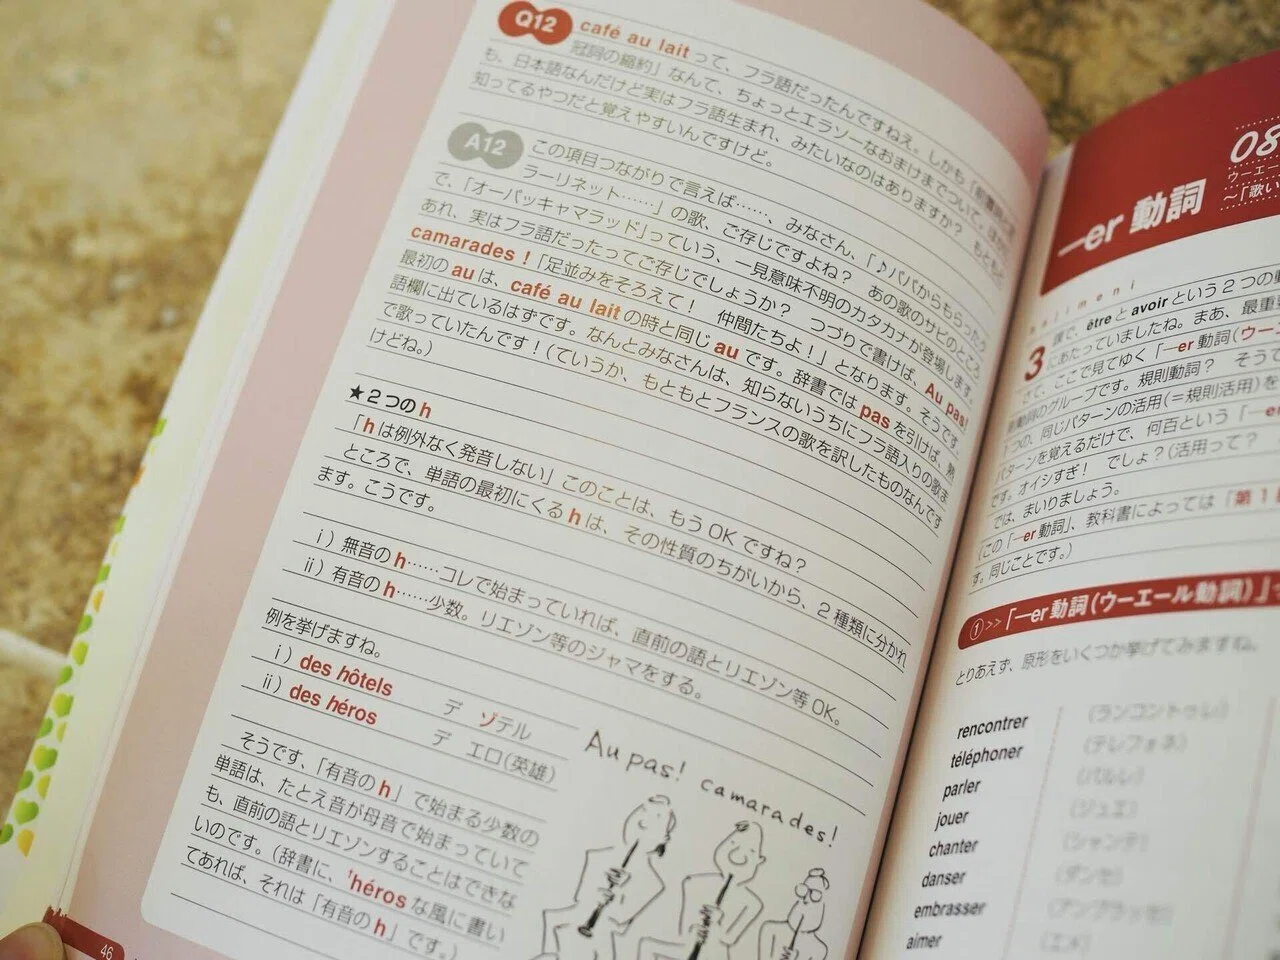 Q12
café au lait って、フラ語だったんですねえ。しかも「前置詞と
冠詞の縮約」なんて、ちょっとエラソーなおまけまでついて。ほかに
も、日本語なんだけど実はフラ語生まれ、みたいなのはありますか？ もともと
知ってるやつだと覚えやすいんですけど。
A12
この項目つながりで言えば……、みなさん、「♪パパからもらった
ラーリネット……」の歌、ご存じですよね？ あの歌のサビのところ
で、「オーパッキャマラッド」っていう、一見意味不明のカタカナが登場します。
あれ、実はフラ語だったってご存じでしょうか？ つづりで書けば、Au pas!
camarades！「足並みをそろえて！ 仲間たちよ！」となります。そうです、
最初の au は、café au lait の時と同じ au です。辞書では pas を引けば、熟
語欄に出ているはずです。なんとみなさんは、知らないうちにフラ語入りの歌ま
で歌っていたんです！（ていうか、もともとフランスの歌を訳したものなんです
けどね。）
★2つの h
「h は例外なく発音しない」このことは、もう OK ですね？
ところで、単語の最初にくる h は、その性質のちがいから、2種類に分かれ
ます。こうです。
ⅰ）無音の h……コレで始まっていれば、直前の語とリエゾン等 OK。
ⅱ）有音の h……少数。リエゾン等のジャマをする。
例を挙げますね。
ⅰ）des hôtels デ ゾテル
ⅱ）des héros デ エロ（英雄）
そうです、「有音の h」で始まる少数の
単語は、たとえ音が母音で始まっていて
も、直前の語とリエゾンすることはできな
いのです。（辞書に、'héros な風に書い
てあれば、それは「有音の h」です。）
Au pas! camarades!
46
08
ウーエー
～「歌い
—er 動詞
hajimeni
3課で、être と avoir という2つの
にあたっていましたね。まあ、最重要
さて、ここで見てゆく「—er 動詞（ウー
動詞のグループです。規則動詞？ そう
1つの、同じパターンの活用（＝規則活用）を
パターンを覚えるだけで、何百という「—e
です。オイシすぎ！ でしょ？（活用って？
では、まいりましょう。
（この「—er 動詞」、教科書によっては「第1
す。同じことです。）
① >> 「—er 動詞（ウーエール動詞）」
とりあえず、原形をいくつか挙げてみますね。
rencontrer （ランコントゥレ）
téléphoner （テレフォネ）
parler （パルレ）
jouer （ジュエ）
chanter （シャンテ）
danser （ダンセ）
embrasser （アンブラッセ）
aimer （エメ）